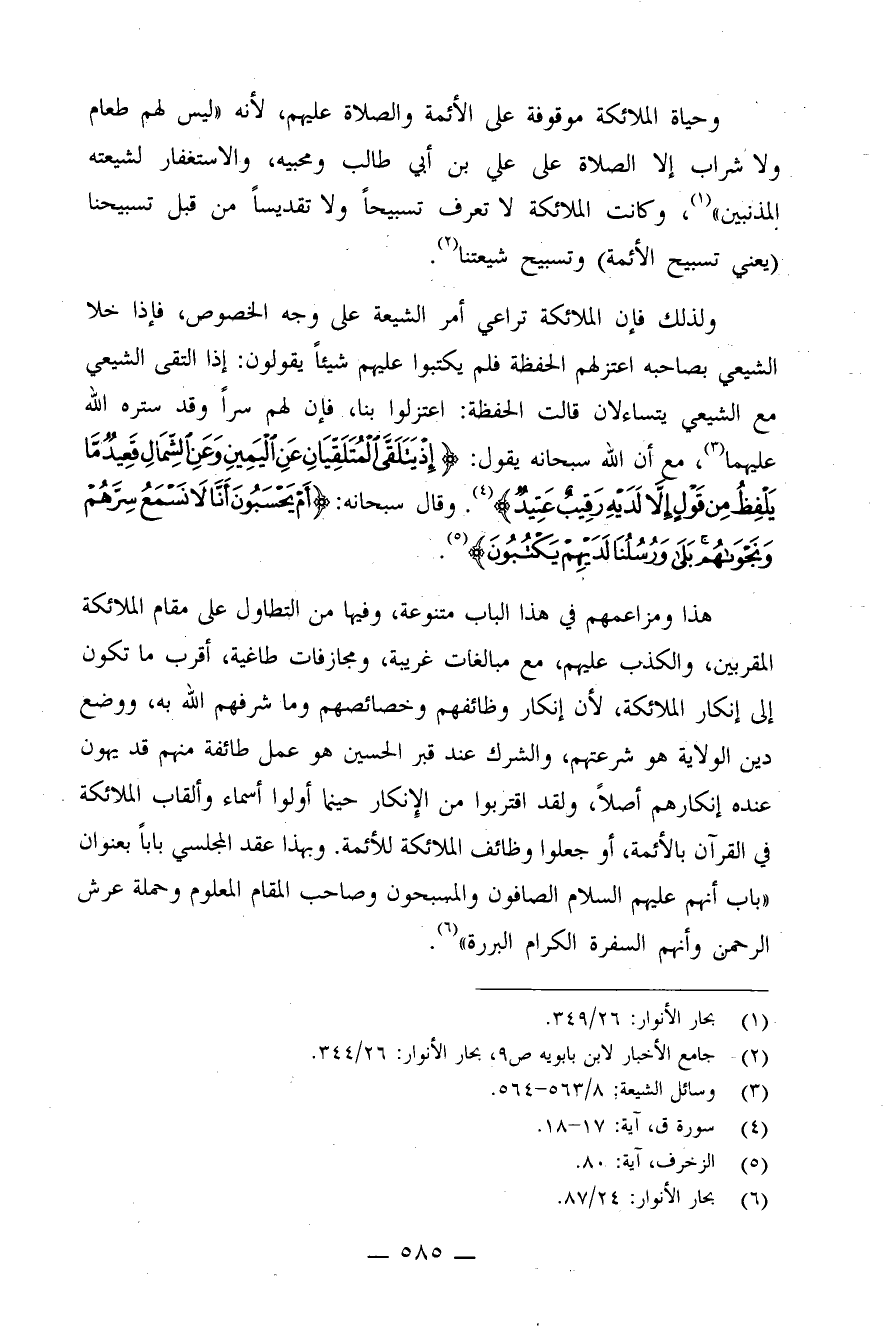 وحياة الملائكة موقوفة على الأئمة والصلاة عليهم، لأنه «ليس لهم طعام
ولا شراب إلا الصلاة على علي بن أبي طالب ومحبيه، والاستغفار لشيعته
المذنبين»(١)، وكانت الملائكة لا تعرف تسبيحاً ولا تقديساً من قبل تسبيحنا
(يعني تسبيح الأئمة) وتسبيح شيعتنا(٢).
ولذلك فإن الملائكة تراعي أمر الشيعة على وجه الخصوص، فإذا خلا
الشيعي بصاحبه اعتزلهم الحفظة فلم يكتبوا عليهم شيئاً يقولون: إذا التقى الشيعي
مع الشيعي يتساءلان قالت الحفظة: اعتزلوا بنا، فإن لهم سراً وقد ستره الله
عليهما(٣)، مع أن الله سبحانه يقول: ﴿إِذْ يَتَلَقَّى الْمُتَلَقِّيَانِ عَنِ الْيَمِينِ وَعَنِ الشِّمَالِ قَعِيدٌ مَّا
يَلْفِظُ مِن قَوْلٍ إِلَّا لَدَيْهِ رَقِيبٌ عَتِيدٌ﴾(٤). وقال سبحانه: ﴿أَمْ يَحْسَبُونَ أَنَّا لَا نَسْمَعُ سِرَّهُمْ
وَنَجْوَىٰهُم ۚ بَلَىٰ وَرُسُلُنَا لَدَيْهِمْ يَكْتُبُونَ﴾(٥).
هذا ومزاعمهم في هذا الباب متنوعة، وفيها من التطاول على مقام الملائكة
المقربين، والكذب عليهم، مع مبالغات غريبة، ومجازفات طاغية، أقرب ما تكون
إلى إنكار الملائكة، لأن إنكار وظائفهم وخصائصهم وما شرفهم الله به، ووضع
دين الولاية هو شرعتهم، والشرك عند قبر الحسين هو عمل طائفة منهم قد يهون
عنده إنكارهم أصلاً، ولقد اقتربوا من الإنكار حينما أولوا أسماء وألقاب الملائكة
في القرآن بالأئمة، أو جعلوا وظائف الملائكة للأئمة. وبهذا عقد المجلسي باباً بعنوان
«باب أنهم عليهم السلام الصافون والمسبحون وصاحب المقام المعلوم وحملة عرش
الرحمن وأنهم السفرة الكرام البررة»(٦).
(١) بحار الأنوار: ٣٤٩/٢٦.
(٢) جامع الأخبار لابن بابويه ص٩، بحار الأنوار: ٣٤٤/٢٦.
(٣) وسائل الشيعة: ٥٦٣/٨-٥٦٤.
(٤) سورة ق، آية: ١٧-١٨.
(٥) الزخرف، آية: ٨٠.
(٦) بحار الأنوار: ٨٧/٢٤.
— ٥٨٥ —